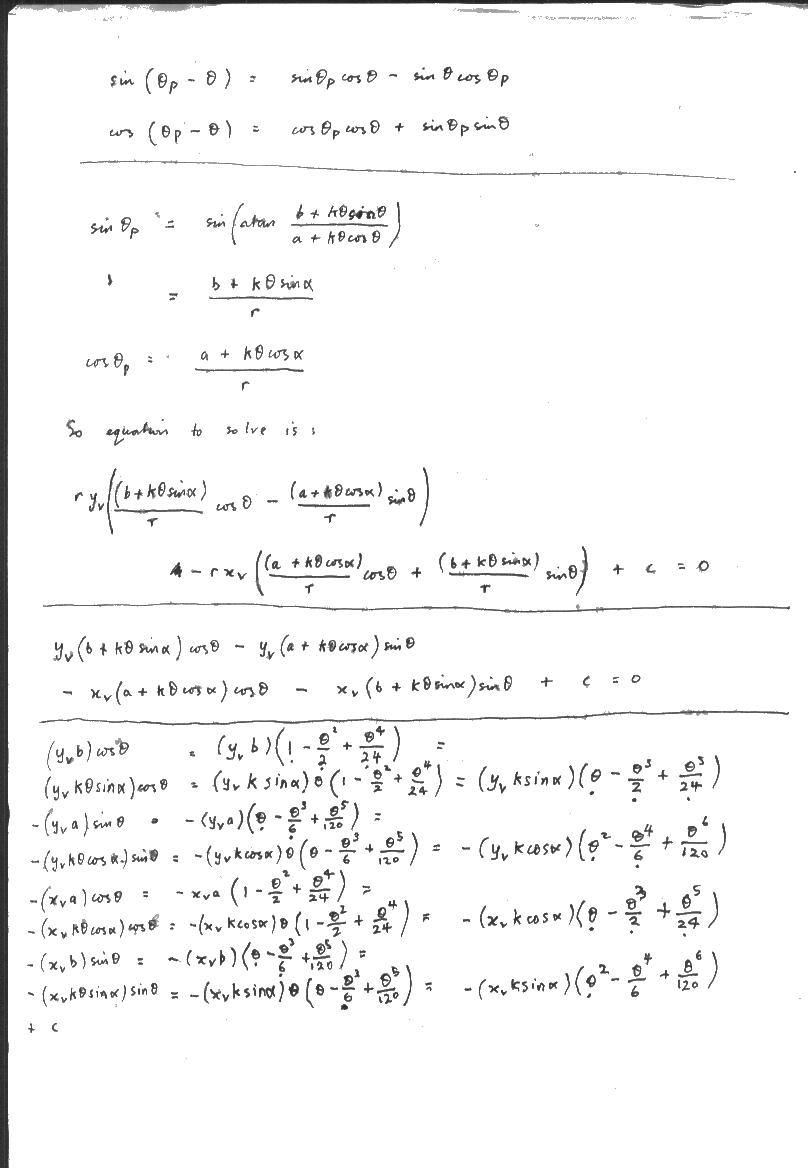 sin (θp - θ) = sinθp cosθ - sin θ cos θp
cos (θp - θ) = cosθp cosθ + sinθp sinθ
sin θp = sin(atan (b + kθsinθ)/(a + kθcosθ))
= (b + kθ sinα)/r
cosθp = (a + kθcosα)/r
So equation to solve is :
r yv((b+kθsinα)/r cosθ - (a+kθcosα)/r sinθ)
- r xv((a + kθcosα)/r cosθ + (b + kθ sinα)/r sinθ) + c = 0
yv(b + kθ sinα) cosθ - yv(a + kθcosα) sinθ
- xv(a + kθcosα) cosθ - xv(b + kθsinα) sinθ + c = 0
(yv b) cosθ = (yv b)(1 - θ²/2 + θ⁴/24) =
(yv kθsinα) cosθ = (yv k sinα) θ (1 - θ²/2 + θ⁴/24) = (yv ksinα)(θ - θ³/2 + θ⁵/24)
-(yv a) sinθ = -(yv a)(θ - θ³/6 + θ⁵/120) =
-(yv kθcosα) sinθ = -(yv kcosα) θ (θ - θ³/6 + θ⁵/120) = -(yv kcosα)(θ² - θ⁴/6 + θ⁶/120)
-(xv a) cosθ = - xv a (1 - θ²/2 + θ⁴/24) =
-(xv kθcosα) cosθ = -(xv kcosα) θ (1 - θ²/2 + θ⁴/24) = -(xv k cosα)(θ - θ³/2 + θ⁵/24)
-(xv b) sinθ = -(xv b)(θ - θ³/6 + θ⁵/120) =
-(xv kθsinα) sinθ = -(xv ksinα) θ (θ - θ³/6 + θ⁵/120) = -(xv ksinα)(θ² - θ⁴/6 + θ⁶/120)
+ c